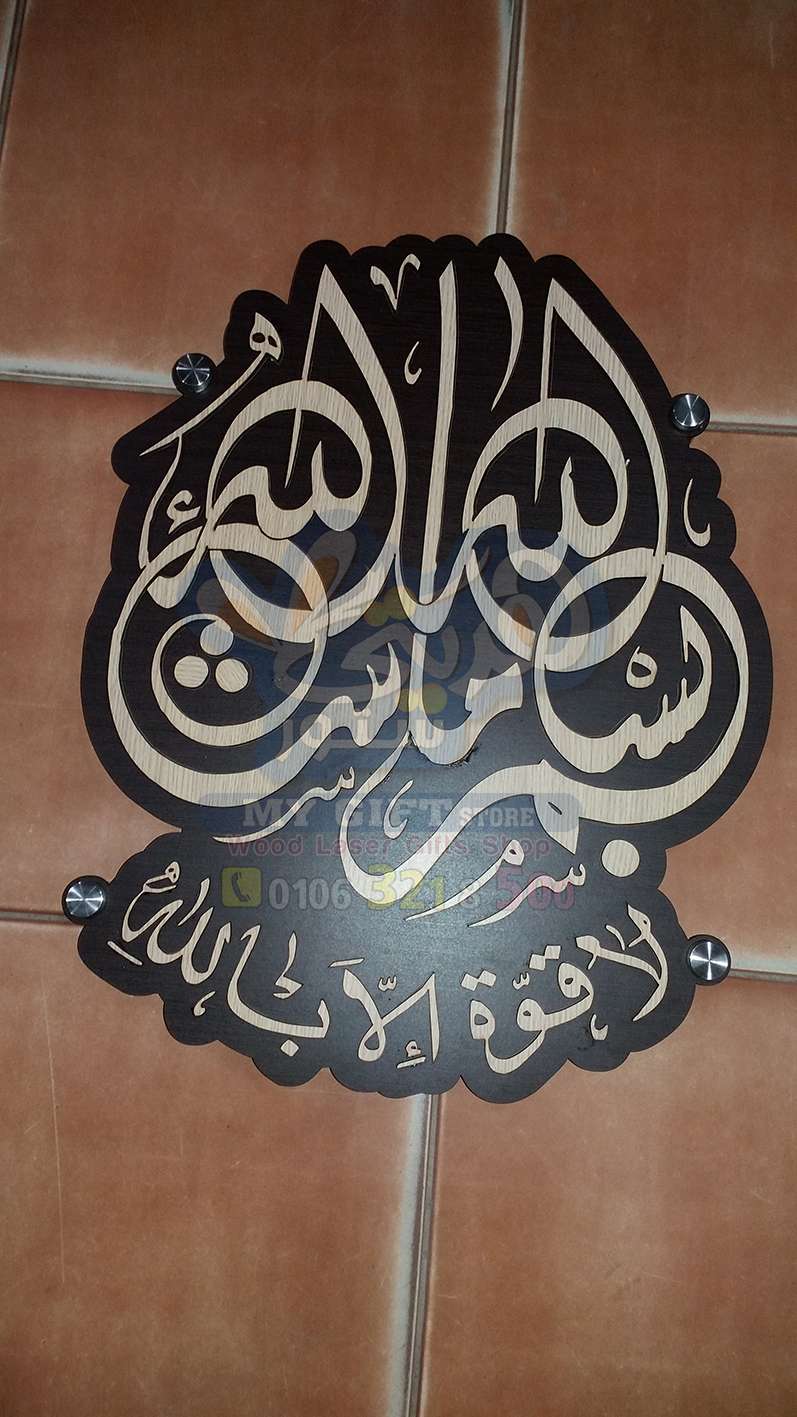 بسم الله ما شاء الله
لا قوة إلا بالله
هديتي
ستور
MY GIFT STORE
Wood Laser Gifts Shop
0106 321 8 500